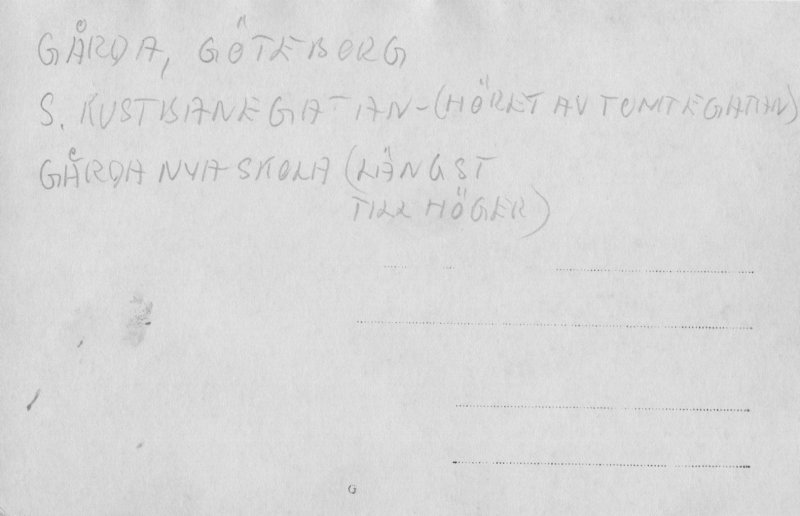 GÅRDA, GÖTEBORG
S. KUSTBANEGATAN - (HÖRET AV TOMTEGATAN)
GÅRDA NYA SKOLA (LÄNGST
TILL HÖGER)
G